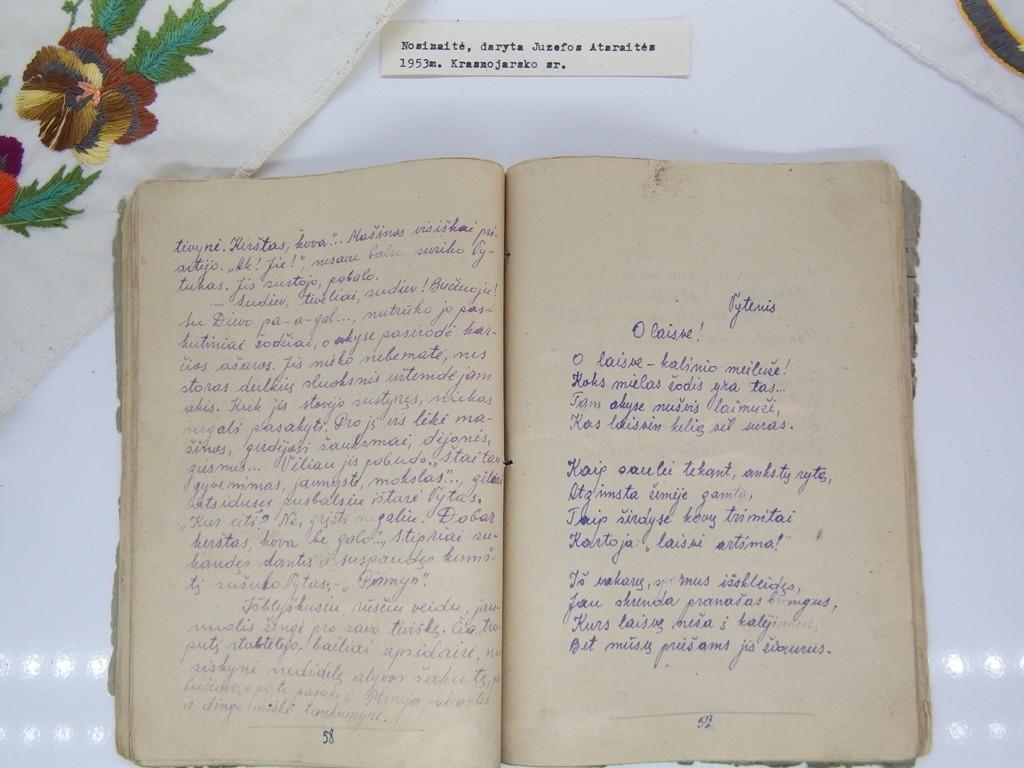 Nosinaitė, daryta Juzefos Ataraitės
1953m. Krasnojarsko sr.
tivynė. Kerštas, kova"... Mašinos visiškai pri-
artėjo. „Ak! Jie!", nesavu balsu suriko Vy-
tukas. Jis sustojo, pabalo.
— Sudiev, tėveliai, sudiev! Bučiuoju!
Su Dievo pa-a-gal..., nutrūko jo pas-
kutiniai žodžiai, o akyse pasirodė kar-
čios ašaros. Jis nieko nebematė, nes
storas dulkių sluoksnis užtemdė jam
akis. Kiek jis stovėjo sustyręs, niekas
negali pasakyti. Pro jį vis lėkė ma-
šinos, girdėjosi šauksmai, dejonės,
giesmės... Vėliau jis pabudo. „Štai tau
gyvenimas, jaunystė, mokslas"...,
atsidusęs pusbalsiu ištarė Vytas.
„Kur eiti? Ne, grįžti negaliu. Dabar
kerštas, kova be galo"..., stipriai su-
kandęs dantis ir suspaudęs kumš-
tį, sušuko Vytas, — „Pirmyn".
Išblyškusiu, rūsčiu veidu, jau-
nuolis žengė pro savo tėviškę. Čia, tru-
putį stabtelėjo, bailiai apsidairė, nu
siskynė nedidelę alyvos šakutę,
bučiavo, o po to pasuko į
ir dingo miško tankumyne.
58
Vytenis
O laisve!
O laisve – kalinio meiluže!
Koks mielas žodis yra tas...
Tam akyse nušvis laimužė,
Kas laisvėn kelią vėl suras.
Kaip saulei tekant, ankstų rytą,
Atgimsta žemėje gamta,
Taip širdyse kovų trimitai
Kartoja: „laisvė artima!"
Iš vakarų, sparnus išskleidęs,
Jau skrenda pranašas brangus,
Kurs laisvę neša į kalėjimus,
Bet mūsų priešams jis žiaurus.
59